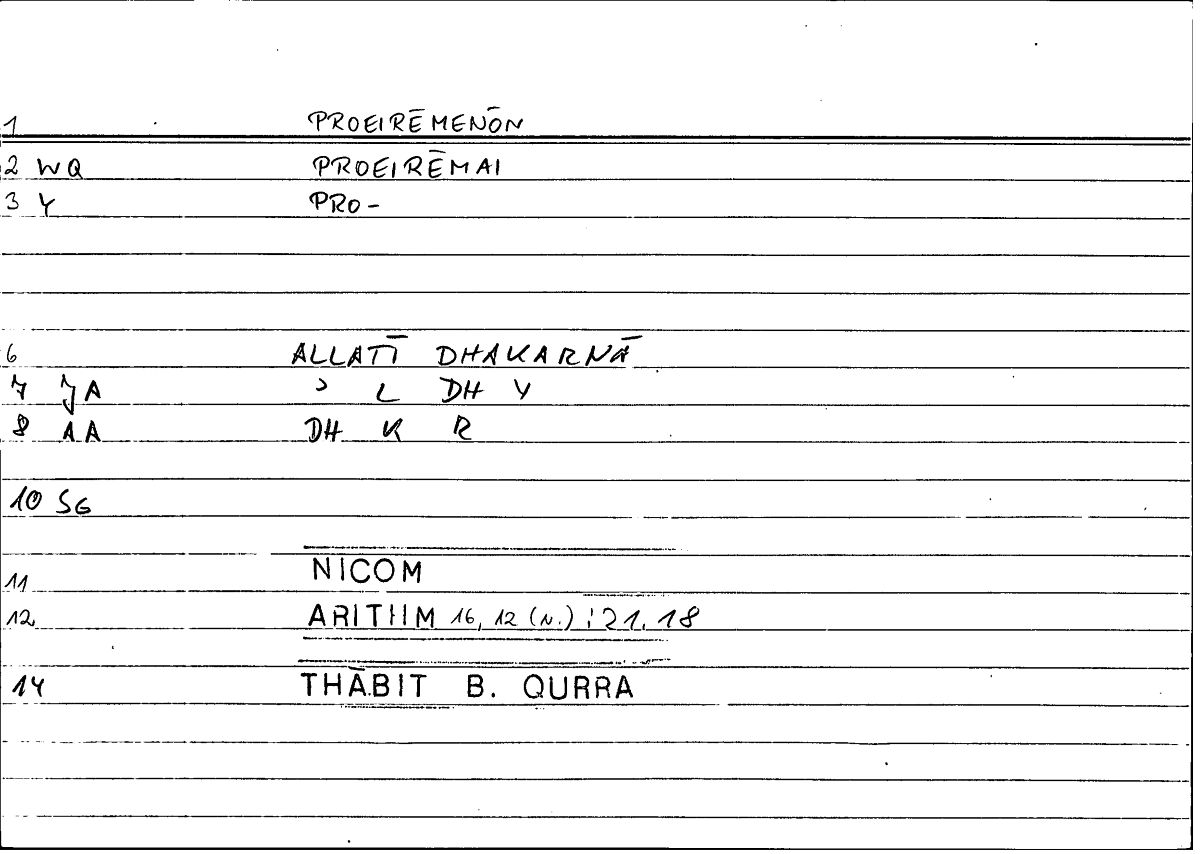 1 PROEIRĒMENŌN
2 WQ PROEIRĒMAI
3 Y PRO-
6 ALLATĪ DHAKARNĀ
7 JA ʾ L DH Y
8 AA DH K R
10 SG
11 NICOM
12 ARITHM 16, 12 (N.) ; 21. 18
14 THĀBIT B. QURRA